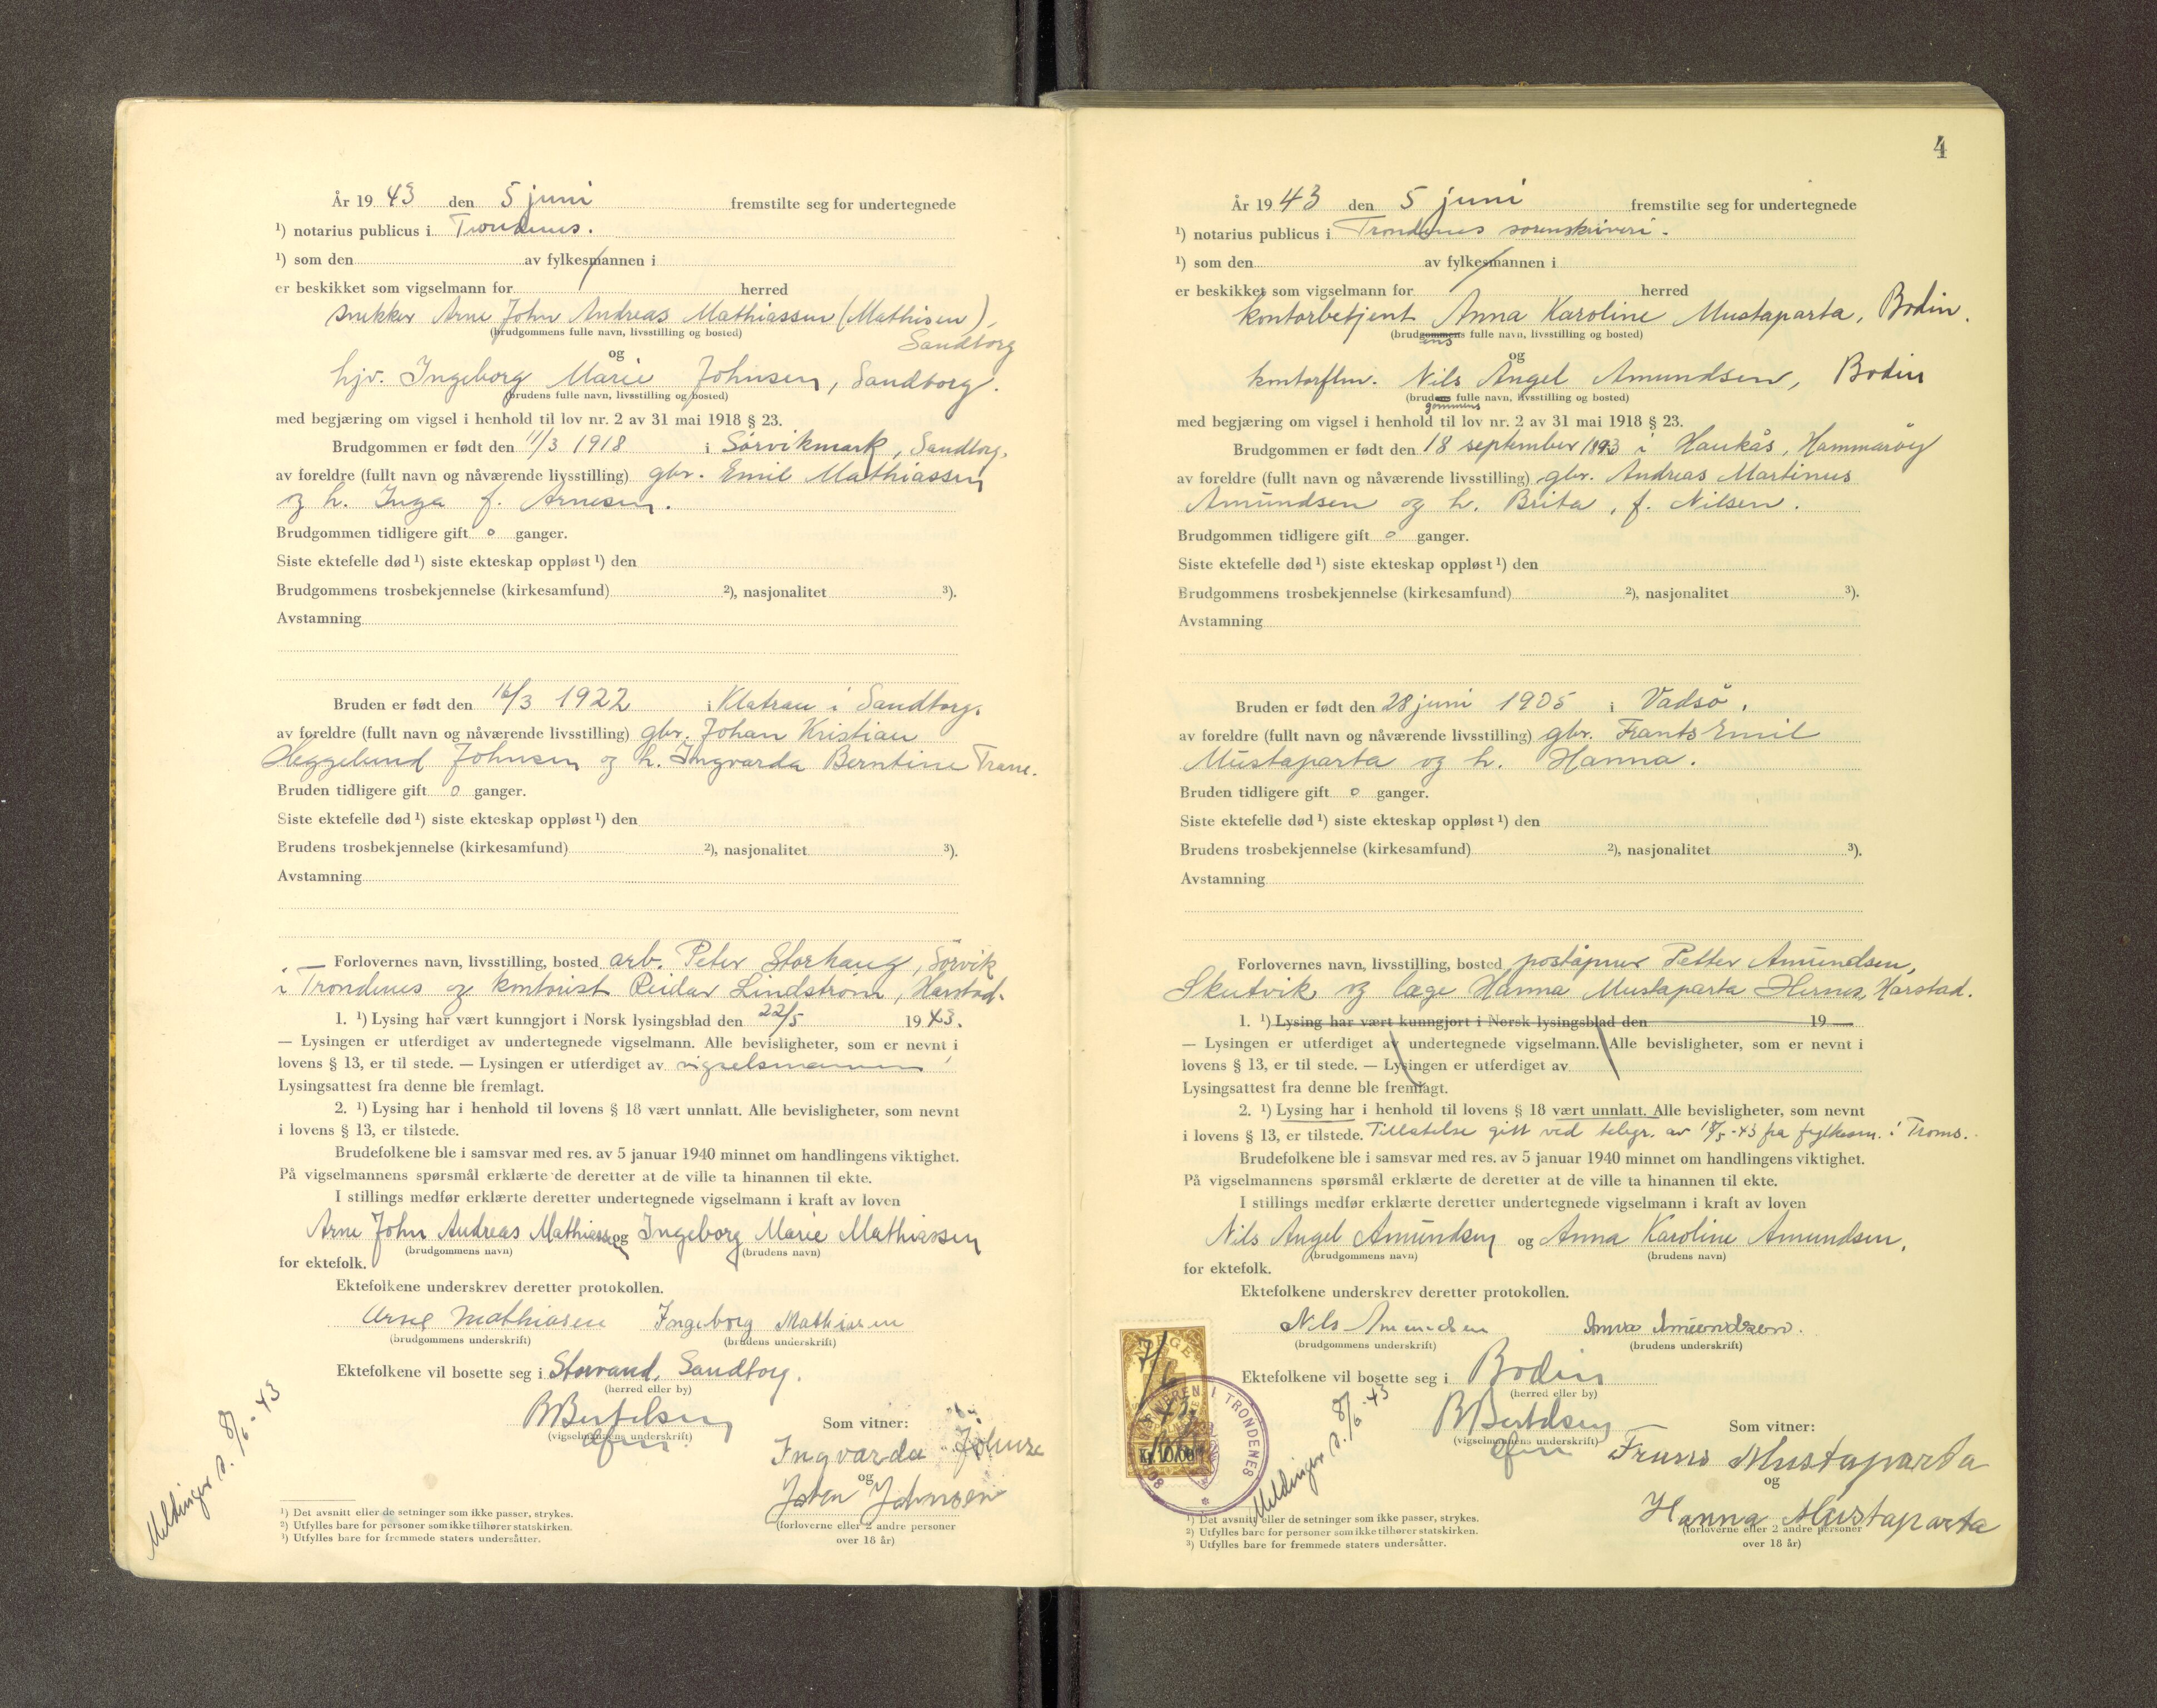 År 19 43 den 5 juni fremstilte seg for undertegnede
¹) notarius publicus i Trondenes.
¹) som den av fylkesmannen i
er beskikket som vigselmann for herred
snekker Arne John Andreas Mathiassen (Mathisen),
(brudgommens fulle navn, livsstilling og bosted)
Sandtorg
og
hjv. Ingeborg Marie Johnsen, Sandtorg.
(brudens fulle navn, livsstilling og bosted)
med begjæring om vigsel i henhold til lov nr. 2 av 31 mai 1918 § 23.
Brudgommen er født den 11/3 1918 i Sørvikmark, Sandtorg.
av foreldre (fullt navn og nåværende livsstilling) gbr. Emil Mathiassen
og h. Inga f. Arnesen.
Brudgommen tidligere gift 0 ganger.
Siste ektefelle død ¹) siste ekteskap oppløst ¹) den
Brudgommens trosbekjennelse (kirkesamfund) ²), nasjonalitet ³).
Avstamning
Bruden er født den 16/3 1922 i Klatran i Sandtorg.
av foreldre (fullt navn og nåværende livsstilling) gbr. Johan Kristian
Heggelund Johnsen og h. Ingvarda Berntine Trane.
Bruden tidligere gift 0 ganger.
Siste ektefelle død ¹) siste ekteskap oppløst ¹) den
Brudens trosbekjennelse (kirkesamfund) ²), nasjonalitet ³).
Avstamning
— Forlovernes navn, livsstilling, bosted arb. Peter Storhaug, Sørvik
i Trondenes og kontorist Reidar Lindstrøm, Harstad.
1. ¹) Lysing har vært kunngjort i Norsk lysingsblad den 22/5 19 43.
— Lysingen er utferdiget av undertegnede vigselmann. Alle bevisligheter, som er nevnt i
lovens § 13, er til stede. — Lysingen er utferdiget av vigselsmannen
Lysingsattest fra denne ble fremlagt.
2. ¹) Lysing har i henhold til lovens § 18 vært unnlatt. Alle bevisligheter, som nevnt
i lovens § 13, er tilstede.
Brudefolkene ble i samsvar med res. av 5 januar 1940 minnet om handlingens viktighet.
På vigselmannens spørsmål erklærte de deretter at de ville ta hinannen til ekte.
I stillings medfør erklærte deretter undertegnede vigselmann i kraft av loven
Arne John Andreas Mathiassen og Ingeborg Marie Mathiassen
(brudgommens navn) (brudens navn)
for ektefolk.
Ektefolkene underskrev deretter protokollen.
Arne Mathiasen Ingeborg Mathiasen
(brudgommens underskrift) (brudens underskrift)
Ektefolkene vil bosette seg i Storvand, Sandtorg.
(herred eller by)
B Bertelsen Som vitner:
(vigselmannens underskrift)
Ingvarda Johnse
og
Johan Johnsen
(forloverne eller 2 andre personer
over 18 år)
Meldinger s. 8/6-43
¹) Det avsnitt eller de setninger som ikke passer, strykes.
²) Utfylles bare for personer som ikke tilhører statskirken.
³) Utfylles bare for fremmede staters undersåtter.
4
År 19 43 den 5 juni fremstilte seg for undertegnede
¹) notarius publicus i Trondenes sorenskriveri.
¹) som den av fylkesmannen i
er beskikket som vigselmann for herred
kontorbetjent Anna Karoline Mustaparta, Bodin.
(brudgommens fulle navn, livsstilling og bosted)
ens
og
kontorflm. Nils Angel Amundsen, Bodin
(brudens fulle navn, livsstilling og bosted)
gommens
med begjæring om vigsel i henhold til lov nr. 2 av 31 mai 1918 § 23.
Brudgommen er født den 18 september 1893 i Haukås, Hammarøy
av foreldre (fullt navn og nåværende livsstilling) gbr. Andreas Martinus
Amundsen og h. Brita, f. Nilsen.
Brudgommen tidligere gift 0 ganger.
Siste ektefelle død ¹) siste ekteskap oppløst ¹) den
Brudgommens trosbekjennelse (kirkesamfund) ²), nasjonalitet ³).
Avstamning
Bruden er født den 28 juni 1905 i Vadsø.
av foreldre (fullt navn og nåværende livsstilling) gbr. Frants Emil
Mustaparta og h. Hanna.
Bruden tidligere gift 0 ganger.
Siste ektefelle død ¹) siste ekteskap oppløst ¹) den
Brudens trosbekjennelse (kirkesamfund) ²), nasjonalitet ³).
Avstamning
Forlovernes navn, livsstilling, bosted poståpner Petter Amundsen,
Skutvik og læge Hanna Mustaparta Hernes, Harstad.
1. ¹) Lysing har vært kunngjort i Norsk lysingsblad den 19
— Lysingen er utferdiget av undertegnede vigselmann. Alle bevisligheter, som er nevnt i
lovens § 13, er til stede. — Lysingen er utferdiget av
Lysingsattest fra denne ble fremlagt.
2. ¹) Lysing har i henhold til lovens § 18 vært unnlatt. Alle bevisligheter, som nevnt
i lovens § 13, er tilstede. Tillatelse gitt ved telegr. av 18/5-43 fra fylkesm. i Troms.
Brudefolkene ble i samsvar med res. av 5 januar 1940 minnet om handlingens viktighet.
På vigselmannens spørsmål erklærte de deretter at de ville ta hinannen til ekte.
I stillings medfør erklærte deretter undertegnede vigselmann i kraft av loven
Nils Angel Amundsen og Anna Karoline Amundsen,
(brudgommens navn) (brudens navn)
for ektefolk.
Ektefolkene underskrev deretter protokollen.
Nils Amundsen Anna Amundsen.
(brudgommens underskrift) (brudens underskrift)
Ektefolkene vil bosette seg i Bodin
(herred eller by)
B Bertelsen Som vitner:
(vigselmannens underskrift)
Frans Mustaparta
og
Hanna Mustaparta
(forloverne eller 2 andre personer
over 18 år)
NORGE
7/6 43.
Kr. 10,00
I TRONDENES
Meldinger s. 8/6-43
¹) Det avsnitt eller de setninger som ikke passer, strykes.
²) Utfylles bare for personer som ikke tilhører statskirken.
³) Utfylles bare for fremmede staters undersåtter.